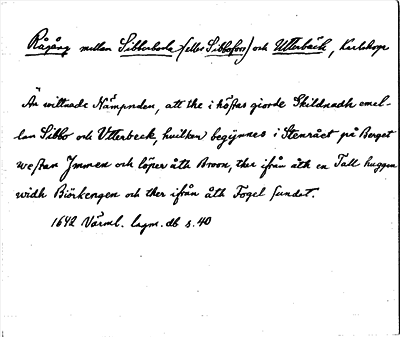 Rågång mellan Sibberboda (eller Sibbofors) och Utterbäck, Karlskoga
Än wittnade Nämpnden, att the i höstas giorde Skildnadh emel-
lan Sibbo och Utterbeck, hvilken begÿnnes i Stenrået på Berget
westan Immen och löper åth Broon, ther ifrån åth en Tall huggen
widh Biörkengen och ther ifrån åth Fogel sundet.
1642 Värml. lagm. db s. 40